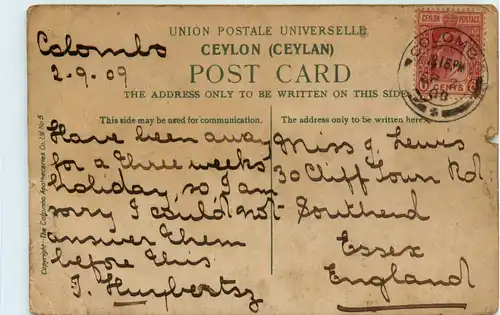 UNION POSTALE UNIVERSELLE
CEYLON (CEYLAN)
POST CARD
THE ADDRESS ONLY TO BE WRITTEN ON THIS SIDE
Colombo
2-9.09
CEYLON POSTAGE
6 CENTS 6
COLOMBO
This side may be used for communication.
Have been away
for a three weeks'
holiday, so I am
sorry I could not
answer them
before this
J. Huybertsz
The address only to be written here.
Miss J. Lewis
30 Cliff Town Rd.
Southend
Essex
England
Copyright—The Colombo Apothecaries Co. Ltd No. 5